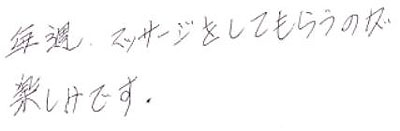 毎週、マッサージをしてもらうのが
楽しみです.